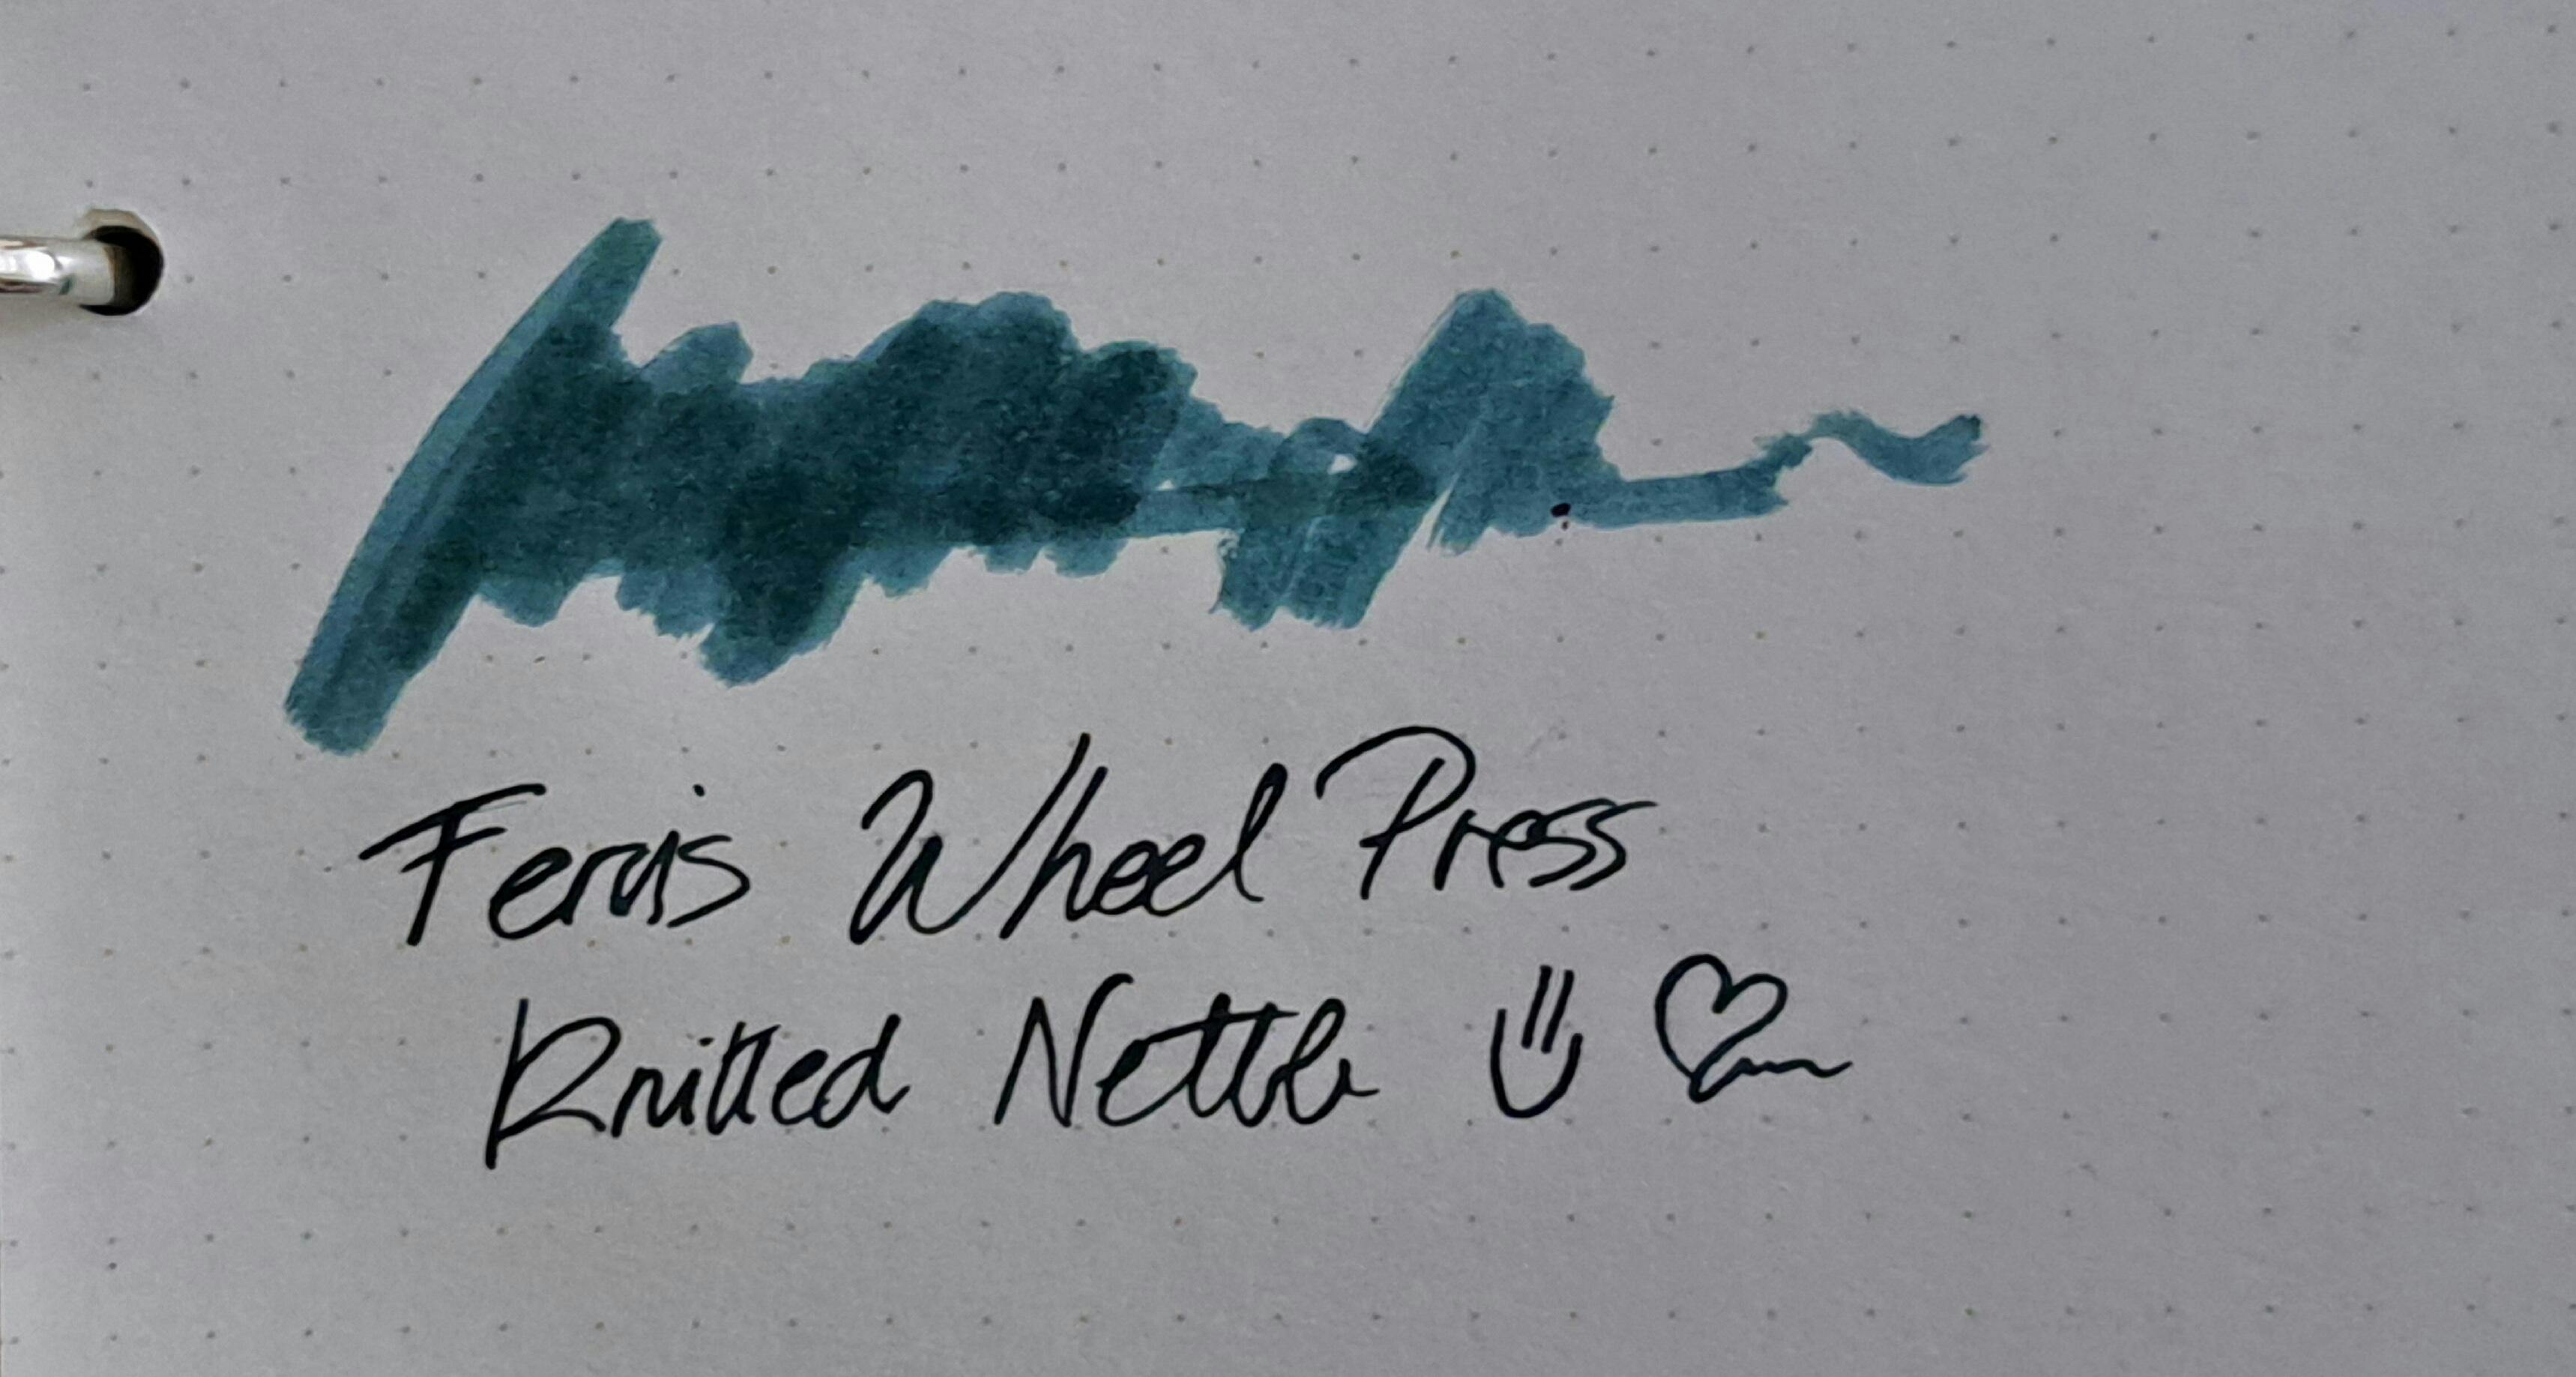 Ferris Wheel Press
Knitted Nettle